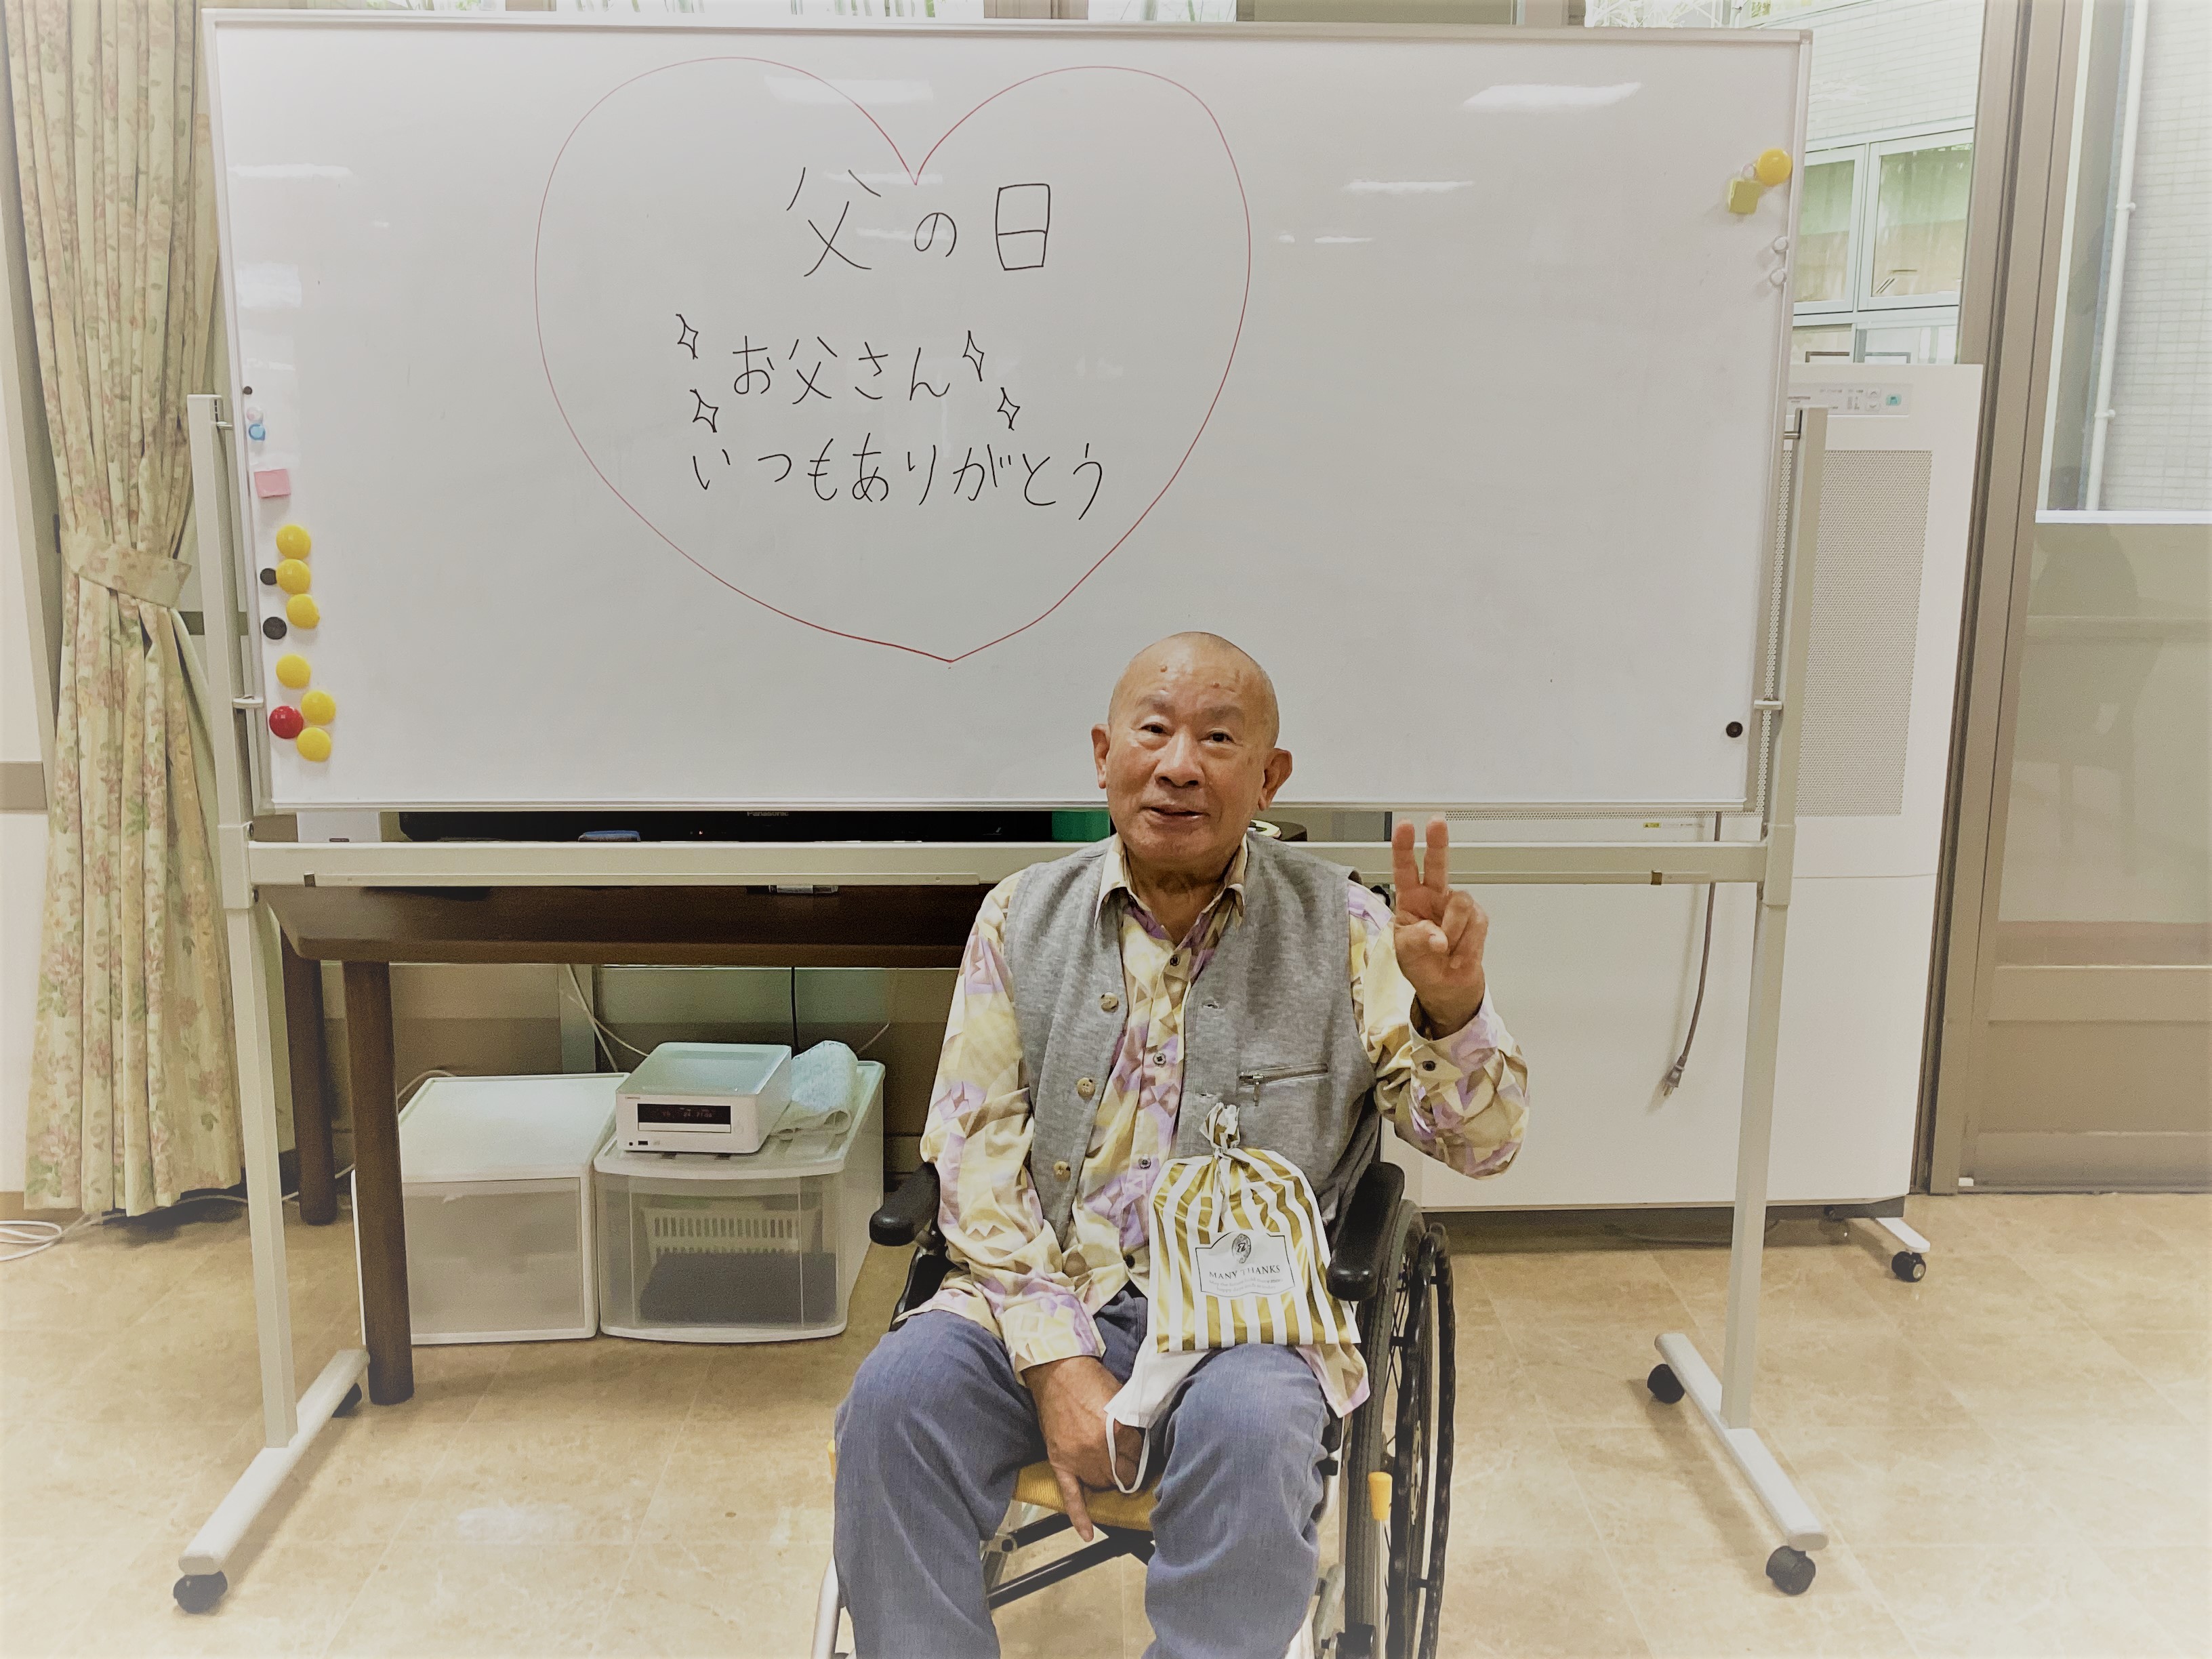 父の日
お父さん
いつもありがとう
Panasonic
MANY THANKS